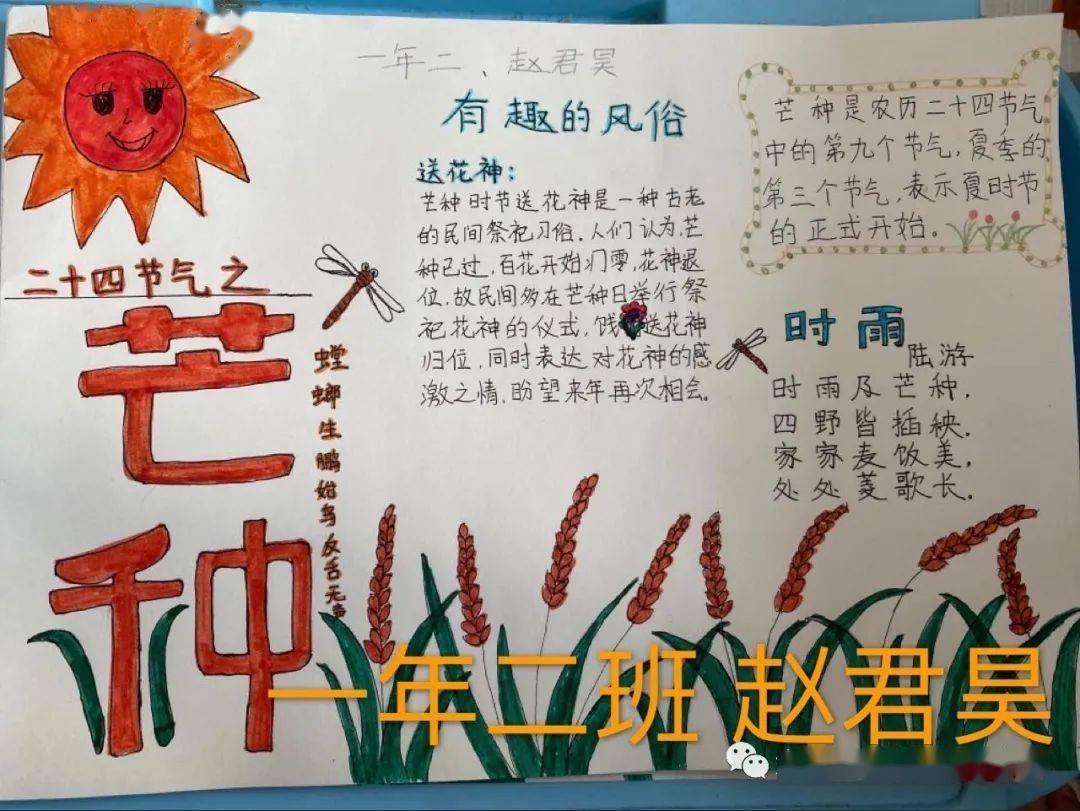 一年二、赵君昊
有趣的风俗
送花神：
芒种时节送花神是一种古老
的民间祭祀习俗.人们认为,芒
种已过,百花开始凋零,花神退
位.故民间多在芒种日举行祭
祀花神的仪式,饯送花神
归位,同时表达对花神的感
激之情,盼望来年再次相会.
芒种是农历二十四节气
中的第九个节气,夏季的
第三个节气,表示夏时节
的正式开始.
时雨
陆游
时雨及芒种,
四野皆插秧.
家家麦饭美,
处处菱歌长.
二十四节气之
芒种
螳螂生鹏始鸟反舌无
一年二班 赵君昊